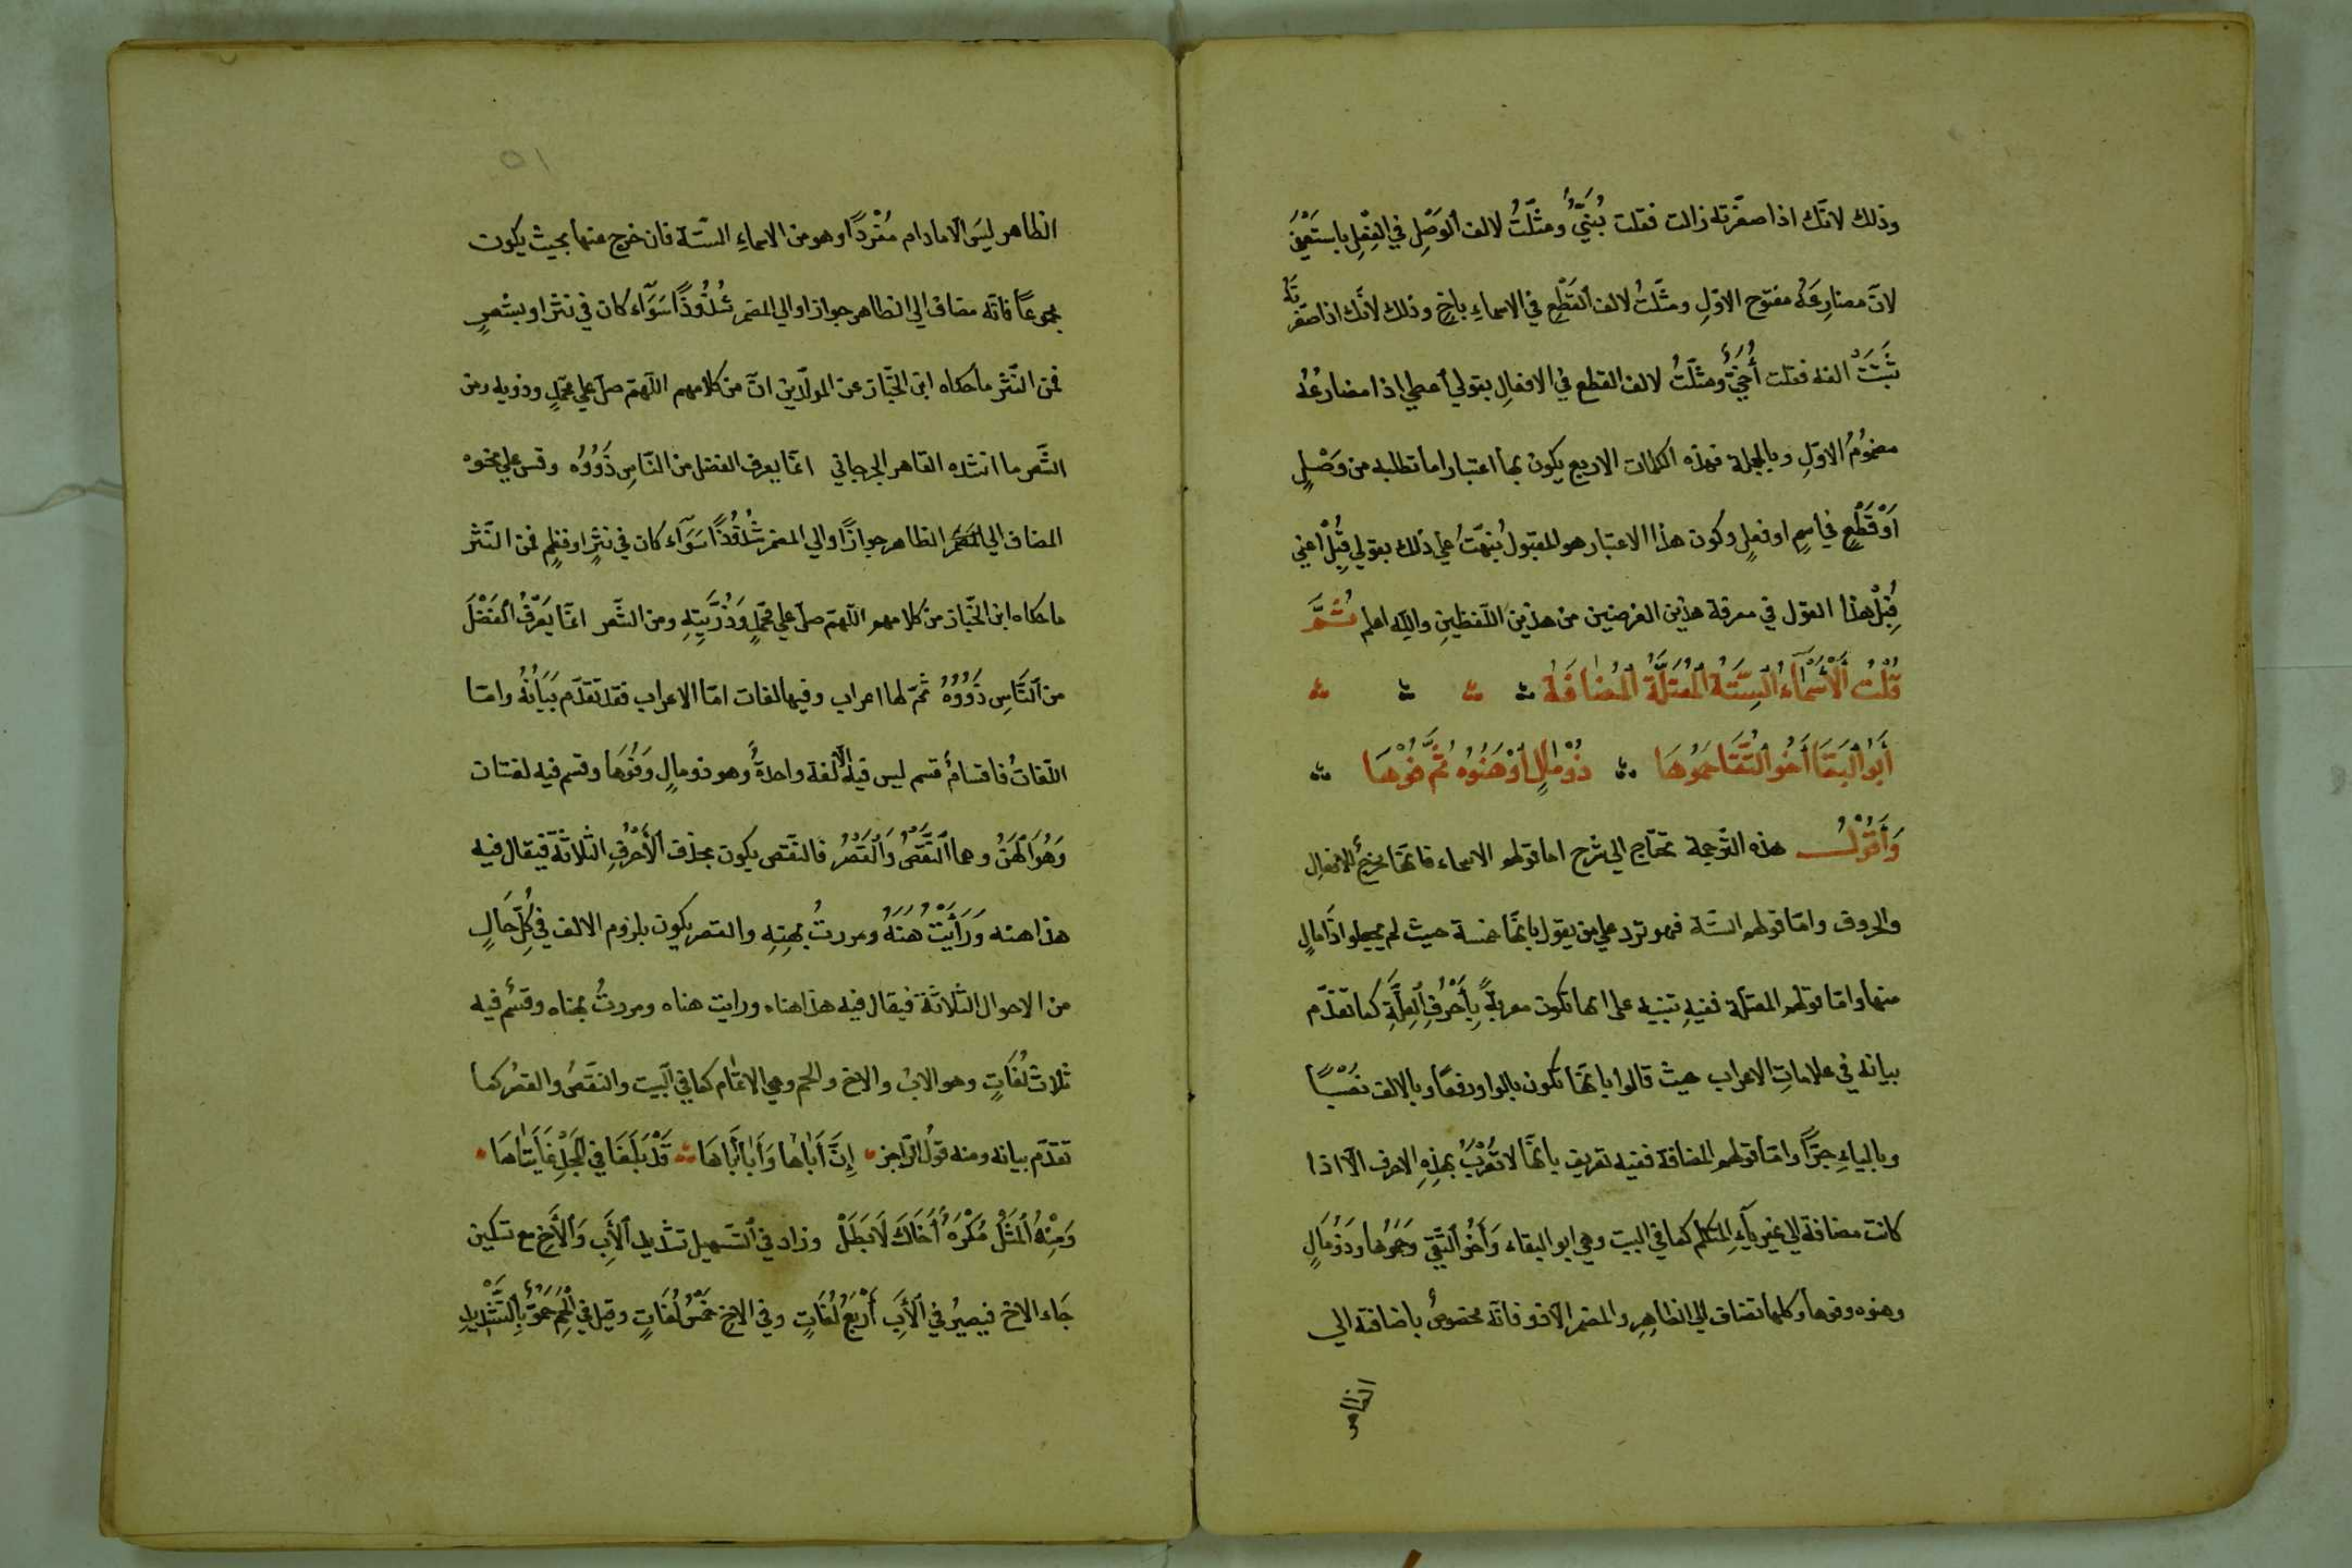 وذلك لانّك اذا صغّرته زالت فقلت بُنَيٌّ ومثّلتُ لالف ٱلوَصْلِ في الفِعْلِ باستَعِن
لانّ مضارِعَهُ مفتوح الاوّلِ ومثّلتُ لالف ٱلقَطْعِ في الاسماءِ باخٍ وذلك لانّك اذا صغّرتَهُ
ثَبَتَتْ الفه فقلت أُخَيٌّ ومثّلتُ لالف القطع في الافعالِ بقولي أعطي اذا مضارعُهُ
مضمُومُ الاوّلِ وبالجملة فهذه الكلمات الاربع يكون بها اعتبار ما تطلبه من وَصْلٍ
اَوْ قَطْعٍ في اسمٍ او فعلٍ وكون هذا الاعتبار هو المقبولُ نبّهتُ على ذلك بقولي قُبِلْ اعني
قُبِلْ هذا القول في معرفة هذين الغرضين من هذين اللّفظينِ والله اعلم ثُمَّ
قُلْتُ ٱلْأَسْمَآءُ السِتَّةُ ٱلْمُعْتَلَّةُ ٱلْمُضَافَة
أَبُو ٱلْبَقَا أَخُو التُّقَا حَمُوهَا ذُوْ مَالٍ اَوْ هَنُوهُ ثُمَّ فُوْهَا
وَأَقُوْلُ هذه التّرجمة تحتاج الى شرح اما قولهم الاسماء فانّها تخرجُ الافعال
والحروف وامّا قولهم السّتة فهو تردّ على من يقول بانّها خمسة حيث لم يجعلوا ذا مالٍ
منها وامّا قولهم المعتلّة ففيهِ تنبيه على انها تكون معربةً بِأَحْرُفِ ٱلعِلَّةِ كما تقدّم
بيانه في علاماتِ الاعراب حيث قالوا بانّها تكون بالواو رفعًا وبالالف نَصْبًا
وبالياءِ جرًّا وامّا قولهم المضافة ففيه تعريف بانّها لا تُعْرَبُ بهذِهِ الاحرف الّا اذا
كانت مضافة الى غير يآءِ المتكلم كما في البيت وهي ابو البقاء وَأَخُو ٱلتّقى وحَمُوها وذُو مَالٍ
وهنوه وفوها وكلها تضاف الى الظاهِرِ والمضمر الّا ذو فانّه مخصوصٌ باضافته الى
الظاهر
٥١
الظاهر ليسَ الّا مادام مُفْرَدًا وهو من الاسماءِ السّتة فان خرج عنها بحيث يكون
مجموعًا فانّه مضاف الى الظاهر جوازا والى المضمر شُذُوذًا سَوَآء كان في نثر او بشعرٍ
فمن النّثر ما حكاه ابن الخبّاز عن المولّدين انّ من كلامهم اللّهمّ صلّ على محمّدٍ وذويه ومن
الشّعر ما انشده القاهر الجرجاني انّما يعرف الفضل من النّاسِ ذَوُوْهُ وقس على نحوه
المضاف الى المضمر الظاهر جوازًا والى المضمر شُذُوذًا سَوَآء كان في نثرٍ او نظمٍ فمن النّثر
ما حكاه ابن الخبّاز من كلامهم اللّهمّ صلّ على محمّدٍ وَذُرِّيَّتِهِ ومن الشّعر انّما يَعْرِفُ ٱلفَضْلَ
من ٱلنَّاسِ ذَوُوْهُ ثمّ لها اعراب وفيها لغات امّا الاعراب فقد تقدّم بَيَانُهُ وامّا
اللّغاتُ فاقسامٌ قسم ليس فيه الّا لغة واحدةٌ وهو ذو مالٍ وَفُوهَا وقسم فيه لغتان
وَهُوَ ٱلهَنُ وهما ٱلنَّقْصُ وَٱلقَصْرُ فالنّقص يكون بحذف ٱلأحْرُفِ الثلاثة فيقال فيه
هذا هنه وَرَأَيْتُ هَنَهُ ومررتُ بهنِهِ والقصر يكون بلزوم الالف في كُلِّ حَالٍ
من الاحوال الثلاثة فيقال فيه هذا هناه ورايت هناه ومررتُ بهناه وقسمٌ فيه
ثلاث لُغَاتٍ وهو الابُ والاخ والحم وهي الاتمام كما في ٱلبيت والنقصُ والقصرُ كما
تقدّم بيانه ومنه قولُ الرّاجز إِنَّ أَبَاهَا وَأَبَا أَبَاهَا قَدْ بَلَغَا فِي ٱلمَجْدِ غَايَتَاهَا
وَمِنْهُ ٱلْمَثَلُ مُكْرَهٌ أَخَاكَ لَا بَطَلْ وزاد في ٱلتّسهيل تشديد ٱلأَبِ وَٱلأَخِ مع تسكين
خَاء الاخ فيصيرُ في ٱلأَبِ أَرْبَعُ لُغَاتٍ وفي الاخ خَمْسُ لُغَاتٍ وقيل في ٱلْحَمِ حَمْؤٌ بِٱلتَّشْدِيدِ